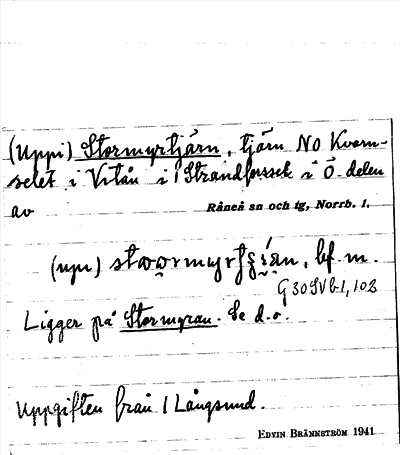 (Uppi) Stormyrtjärn, tjärn NO Kvarn-
selet i Vitån i 1 Strandforsel i Ö. delen
av Råneå sn och tg, Norrb. l.
(upi) bf. m.
G 30 SV b 1, 102
Ligger på Stormyran. Se d.o.
Uppgiften från 1 Långsund.
EDVIN BRÄNNSTRÖM 1941